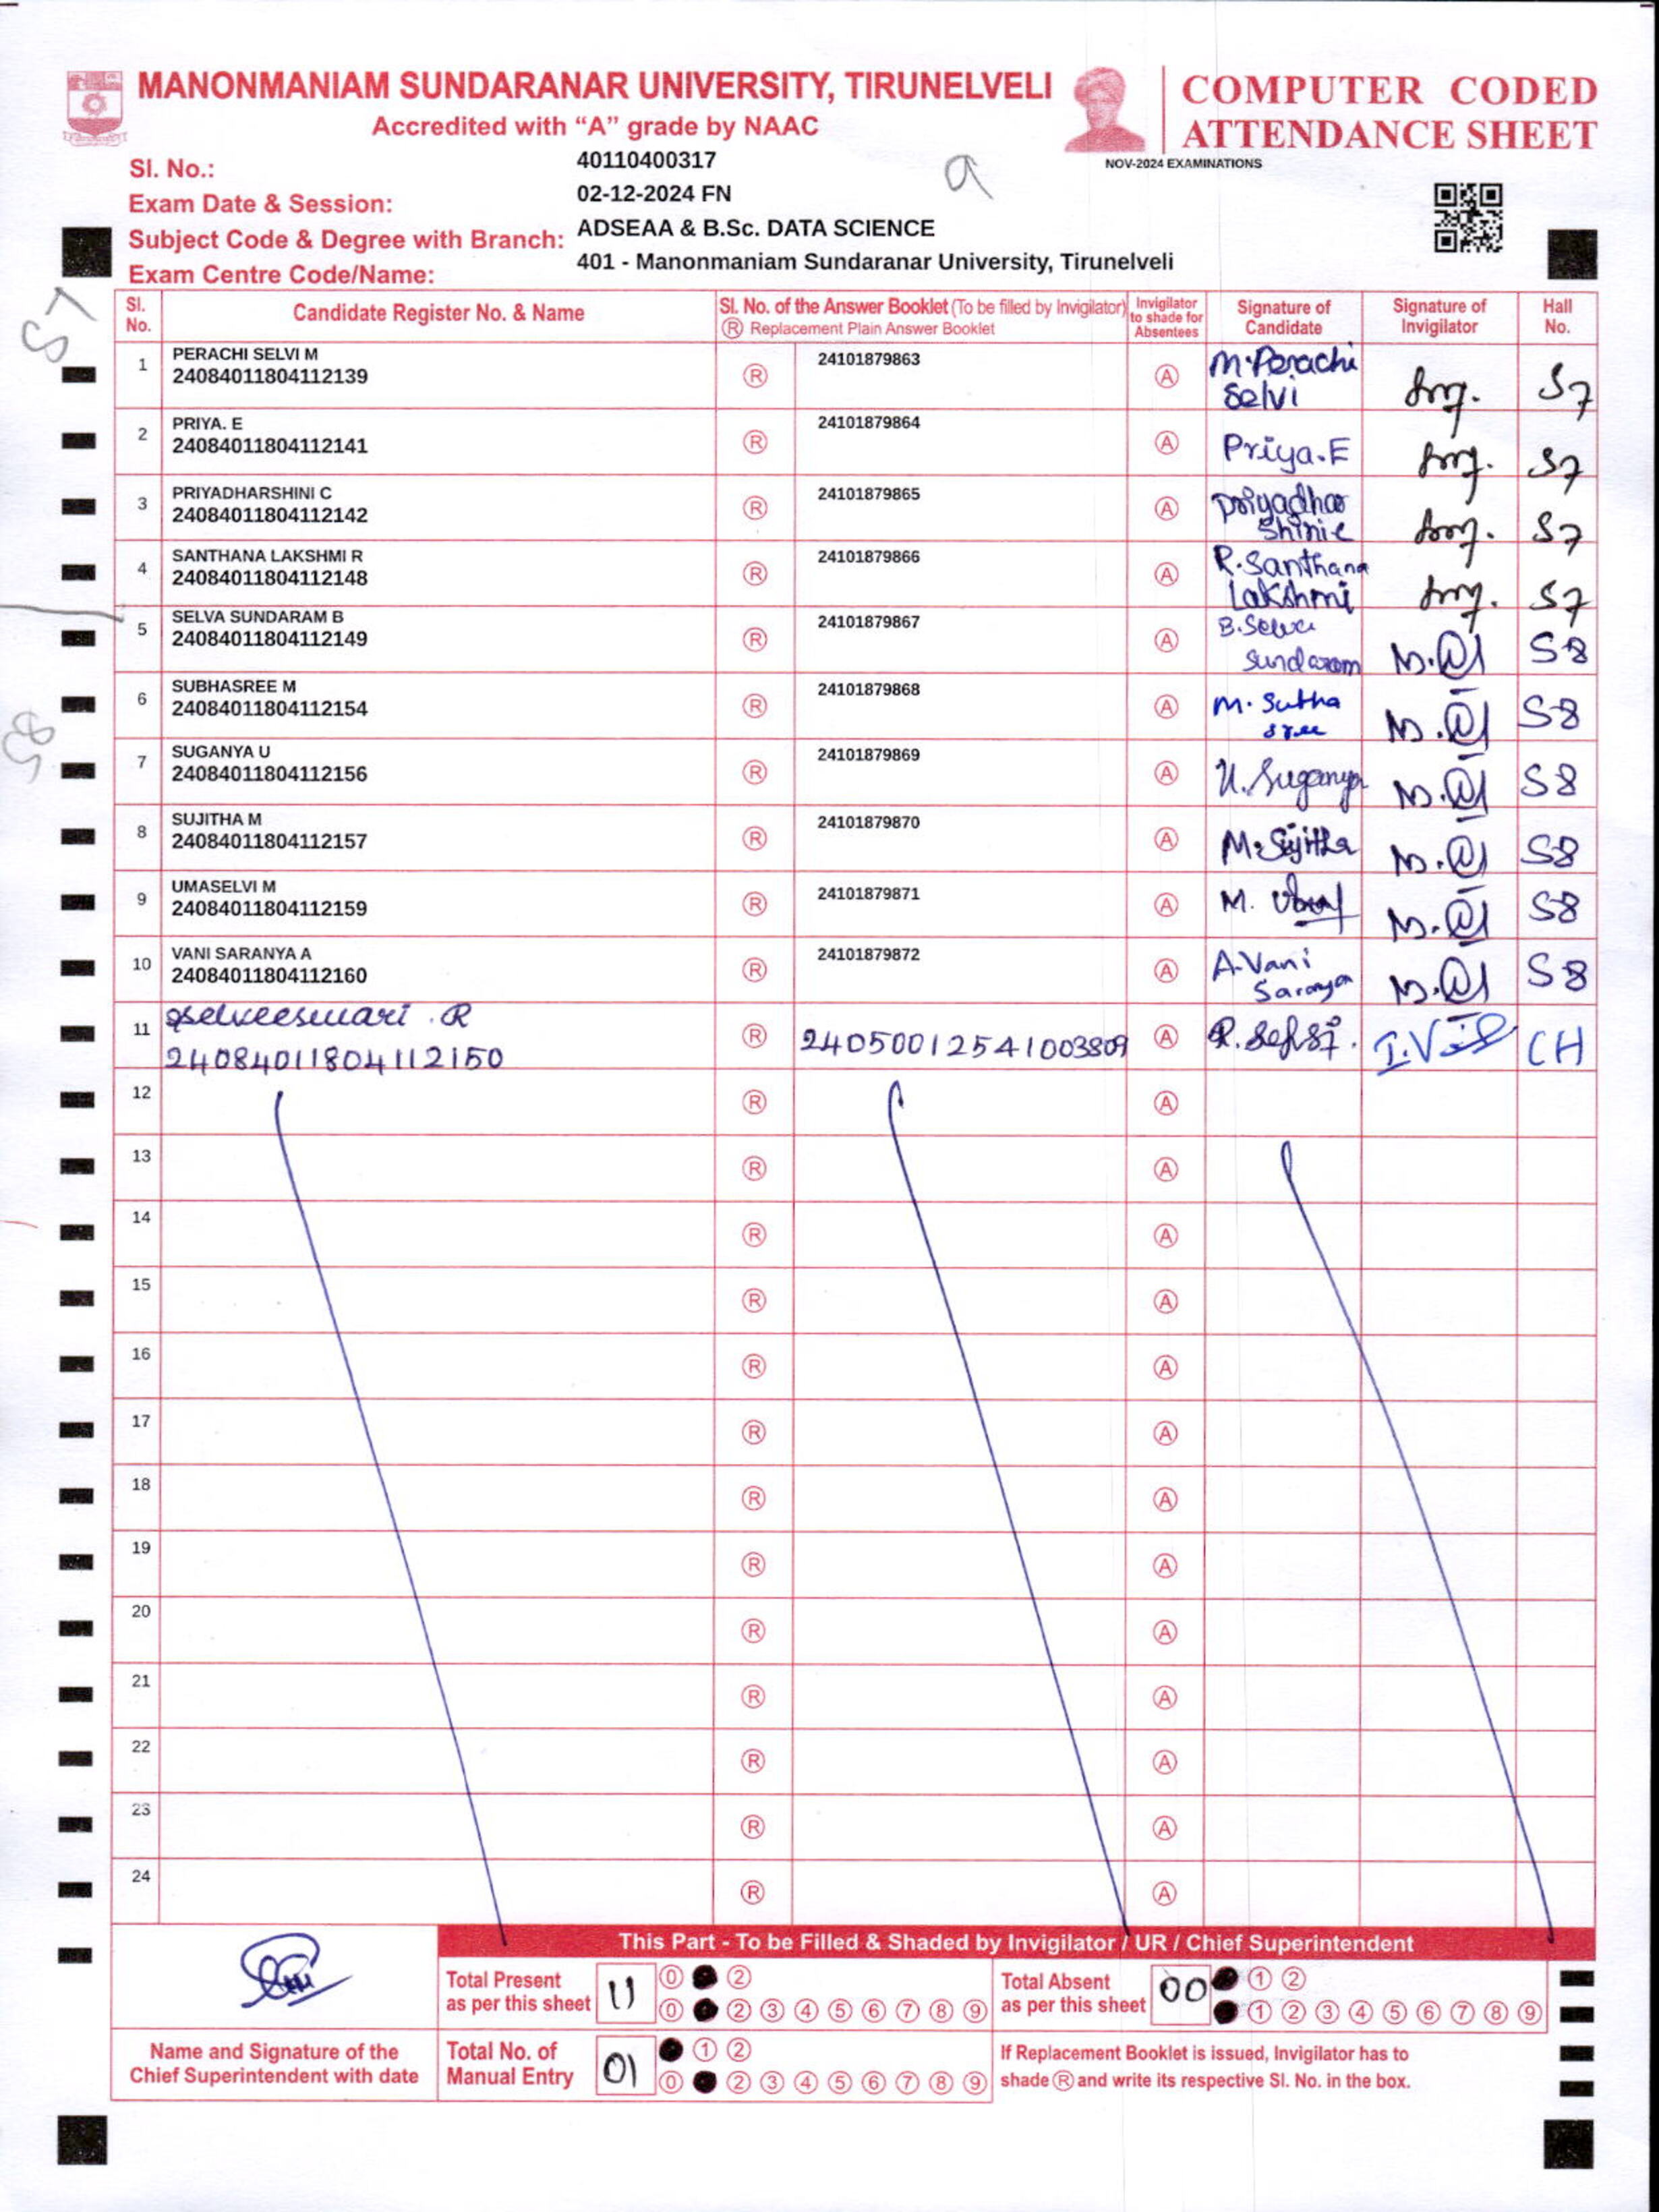 MANONMANIAM SUNDARANAR UNIVERSITY, TIRUNELVELI
Accredited with “A” grade by NAAC
COMPUTER CODED
ATTENDANCE SHEET
NOV-2024 EXAMINATIONS
a
Sl. No.: 40110400317
Exam Date & Session: 02-12-2024 FN
Subject Code & Degree with Branch: ADSEAA & B.Sc. DATA SCIENCE
Exam Centre Code/Name: 401 - Manonmaniam Sundaranar University, Tirunelveli
S7
Sl. No. Candidate Register No. & Name Sl. No. of the Answer Booklet (To be filled by Invigilator) Ⓡ Replacement Plain Answer Booklet Invigilator to shade for Absentees Signature of Candidate Signature of Invigilator Hall No.
1 PERACHI SELVI M 24101879863 M.Perachi
24084011804112139 Ⓡ Ⓐ Selvi S7
2 PRIYA. E 24101879864
24084011804112141 Ⓡ Ⓐ Priya.E S7
3 PRIYADHARSHINI C 24101879865 Priyadhar
24084011804112142 Ⓡ Ⓐ Shinie S7
4 SANTHANA LAKSHMI R 24101879866 R.Santhana
24084011804112148 Ⓡ Ⓐ Lakshmi S7
5 SELVA SUNDARAM B 24101879867 B.Selva
24084011804112149 Ⓡ Ⓐ Sundaram S8
6 SUBHASREE M 24101879868 M. Subha
24084011804112154 Ⓡ Ⓐ sree S8
S8
7 SUGANYA U 24101879869
24084011804112156 Ⓡ Ⓐ U.Suganya S8
8 SUJITHA M 24101879870
24084011804112157 Ⓡ Ⓐ M.Sujitha S8
9 UMASELVI M 24101879871
24084011804112159 Ⓡ Ⓐ M. S8
10 VANI SARANYA A 24101879872 A.Vani
24084011804112160 Ⓡ Ⓐ Saranya S8
11 R Ⓡ 24050012541003809 Ⓐ CH
24084011804112150
12 Ⓡ Ⓐ
13 Ⓡ Ⓐ
14 Ⓡ Ⓐ
15 Ⓡ Ⓐ
16 Ⓡ Ⓐ
17 Ⓡ Ⓐ
18 Ⓡ Ⓐ
19 Ⓡ Ⓐ
20 Ⓡ Ⓐ
21 Ⓡ Ⓐ
22 Ⓡ Ⓐ
23 Ⓡ Ⓐ
24 Ⓡ Ⓐ
This Part - To be Filled & Shaded by Invigilator / UR / Chief Superintendent
Total Present as per this sheet 11
0 2
0 2 3 4 5 6 7 8 9
Total Absent as per this sheet 00
1 2
1 2 3 4 5 6 7 8 9
Name and Signature of the
Chief Superintendent with date
Total No. of Manual Entry 01
1 2
0 2 3 4 5 6 7 8 9
If Replacement Booklet is issued, Invigilator has to
shade Ⓡ and write its respective Sl. No. in the box.